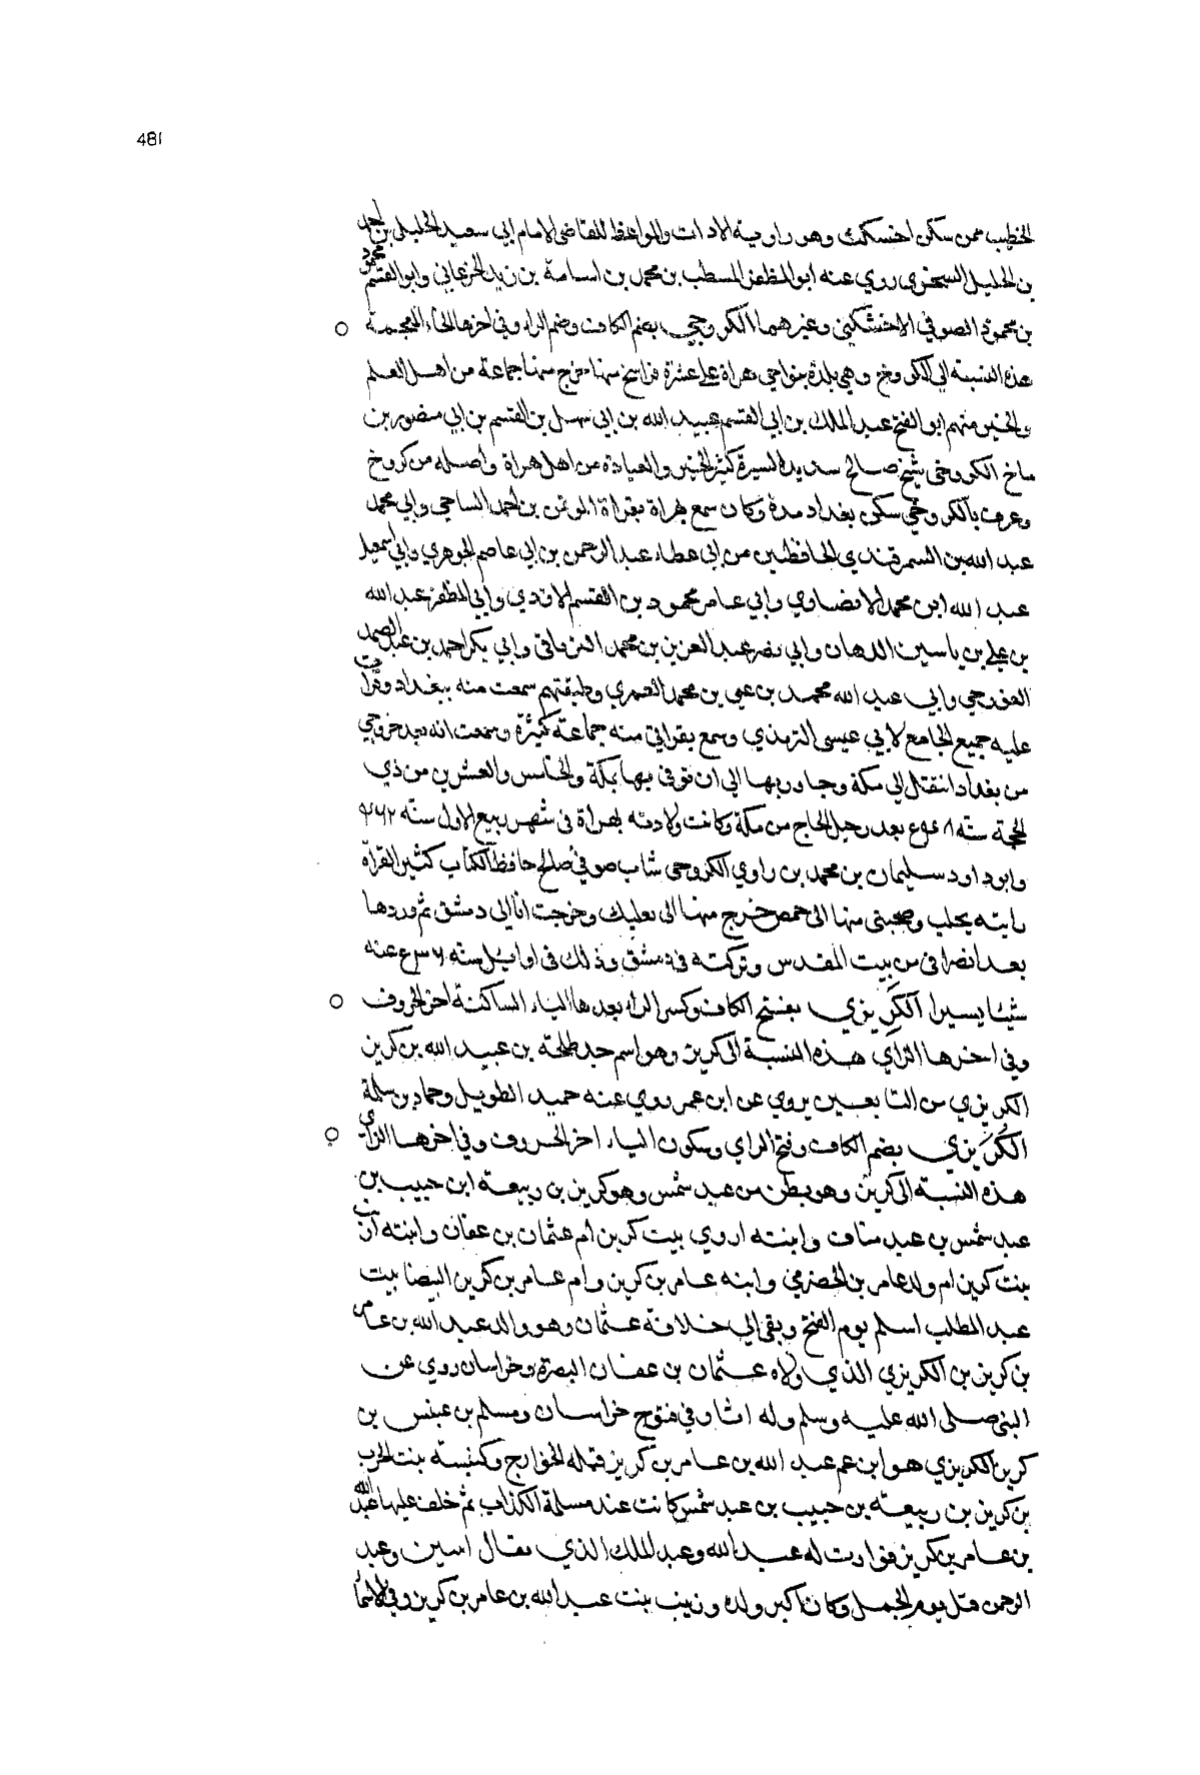 481
الخطيب ممن سكن اخسيكث وهو راوية الادات والمواعظ للقاضى الامام ابي سعيد الخليلى بن احمد
بن الخليل السجزى روي عنه ابو المظفر المسطب بن محمد بن اسامة بن زيد الخرغاني وابو القسم محمود
بن محمود الصوفي الاخشكيني وغيرهما الكروخي بضم الكاف وضم الراء وفي اخرها الخاء المعجمة
هذه النسبة الي الكروخ وهي بلدة بنواحى هراة على عشرة فراسخ منها خرج منها جماعة من اهل العلم
والخير منهم ابو الفتح عبد الملك بن ابي القسم عبيد الله بن ابي سهل بن القسم بن ابي منصور بن
ماخ الكروخى شيخ صالح سديد السيرة كثير الخير والعبادة من اهل هراة واصله من كروخ
وعرف بالكروخي سكن بغداد مدة وكان سمع بهراة بقراة المؤتمن بن احمد الساجي وابي محمد
عبد الله بن السمرقندي الحافظين من ابي عطاء عبد الرحمن بن ابي عاصم الجوهري وابي اسمعيل
عبد الله ابن محمد الانصاري وابي عامر محمود بن القسم الازدي وابي المظفر عبد الله
بن علي بن ياسين الدهان وابي نصر عبد العزيز بن محمد الترياقى وابي بكر احمد بن عبد الصمد
الغورجي وابي عبد الله محمد بن علي بن محمد العميري وطبقتهم سمعت منه ببغداد وقرات
عليه جميع الجامع لابي عيسى الترمذي وسمع بقراتي منه جماعة كثيرة وسمعت انه بعد خروجي
من بغداد انتقل الي مكة وجاور بها الي ان توفى بها بمكة والخامس والعشرين من ذي
الحجة سنه بعد رحيل الحاج من مكة وكانت ولادته بهراة فى شهر ربيع الاول سنه ٤٦٢
وابو داود سليمان بن محمد بن راوي الكروخى شاب صوفي صالح حافظ الكتاب كثير القراة
رايته بحلب وصحبنى منها الى حمص خرج منها الى بعلبك وخرجت انا الى دمشق ثم وردها
بعد انصرافى من بيت المقدس وتركته فى دمشق وذلك فى اوايل سنه عنه
شيئا يسيرا الكَرِيزي بفتح الكاف وكسر الراء بعدها الياء الساكنة اخر الحروف
وفي اخرها الزاي هذه النسبة الى كريز وهو اسم جد طلحة بن عبيد الله بن كريز
الكريزي من التابعين يروي عن ابن عمر روي عنه حميد الطويل وحماد بن سلمة
الكُرَيزي بضم الكاف وفتح الراي وسكون الياء اخر الحروف وفي اخرها الزاي
هذه النسبة الى كريز وهو بطن من عبد شمس وهو كريز بن ربيعة ابن حبيب بن
عبد شمس بن عبد مناف وابنته اروي بيت كريز ام عثمان بن عفان وابنته
بنت كريز ام ولد عامر بن الحضرمي وابنه عامر بن كريز وام عامر بن كريز البيضا بيت
عبد المطلب اسلم يوم الفتح وبقى الي خلافة عثمان وهو والد عبد الله بن عامر
بن كريز بن الكريزي الذي ولاه عثمان بن عفان البصرة وخراسان روي عن
النبى صلى الله عليه وسلم وله اثار في فتوح خراسان ومسلم بن عبيس بن
كريز الكريزي هو ابن عم عبد الله بن عامر بن كريز قتله الخوارج وكيسة بنت الحرب
بن كريز بن ربيعة بن حبيب بن عبد شمس كانت عند مسلمة الكذاب ثم خلف عليها عبد الله
بن عامر بن كريز فولدت له عبد الله وعبد الملك الذي يقال اسين وعبد
الرحمن قتل يوم الجمل وكان اكبر ولده وزينب بنت عبد الله بن عامر بن كريز